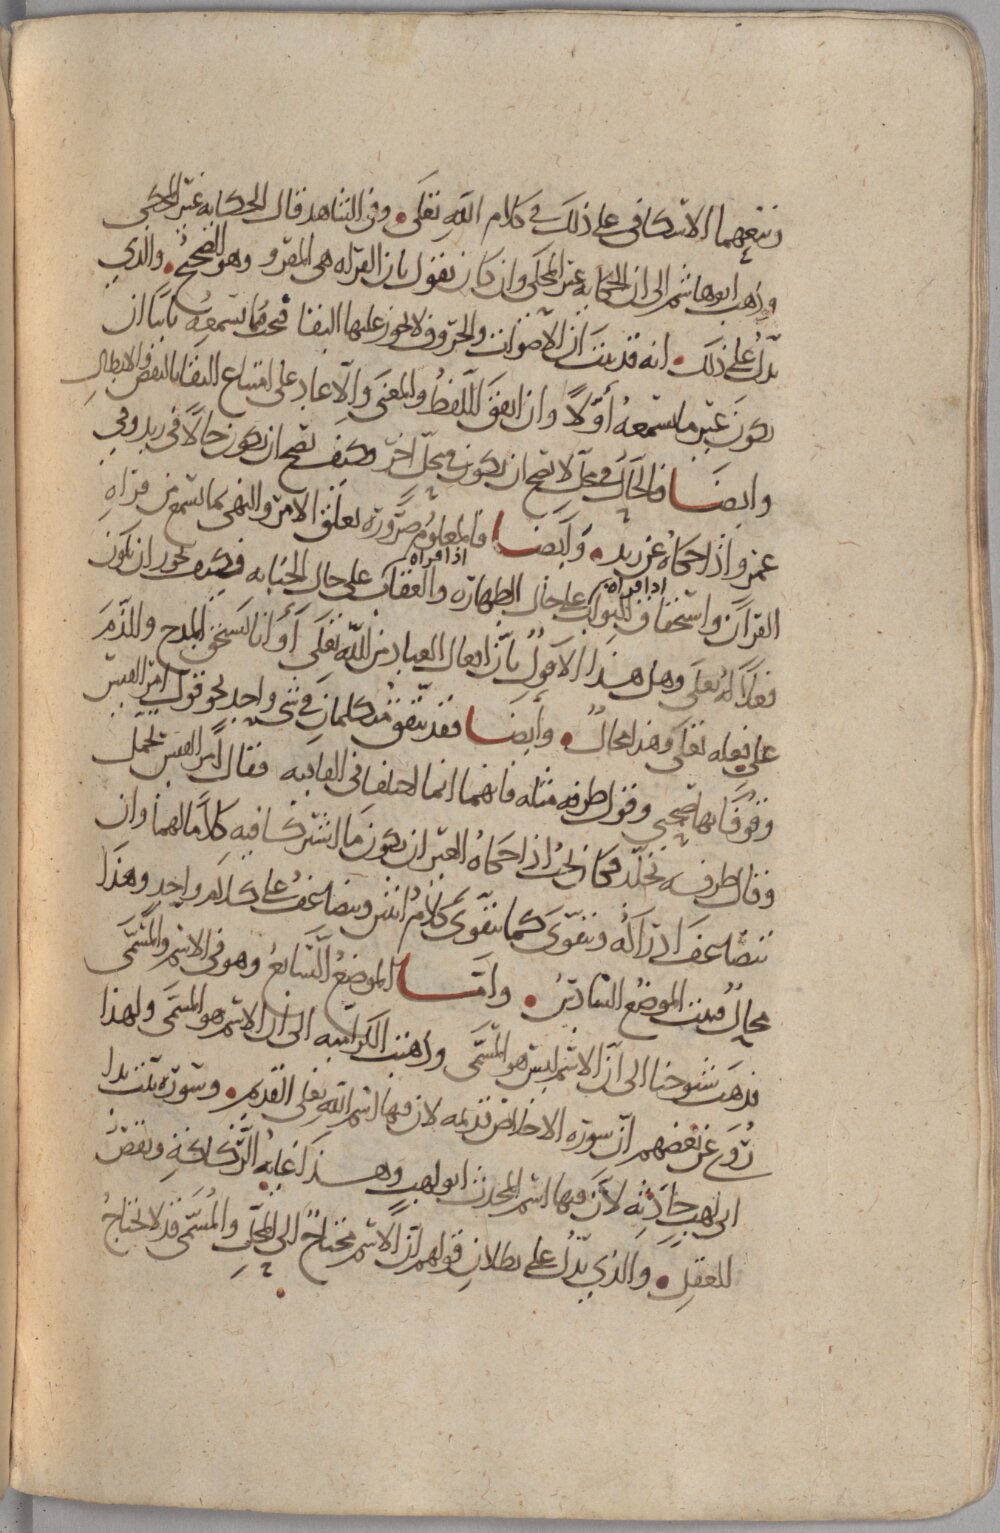 وتبعهما الاسكافى على ذلك فى كلام الله تعلى وفى الشاهد قال الحكايه غير المحكي
وذهب ابو هاشم الى ان الحكايه غير المحكي وان كان يقول بان القراه هى المقرو وهو الصحيح والذي
يدل على ذلك انه قد ثبت ان الاصوات والحروف لا يجوز عليها البقا فيجب فيما نسمعه ثانيا ان
يكون غير ما نسمعه أولا وان اتفق اللفظ والمعنى والا عاد على امتناع البقا بالنقض والابطال
وايضا فالحال فى محل لا يصح ان يكون فى محل اخر فكيف يصح ان يكون حالا فى زيد وفي
عمرو اذا حكاه عن زيد وايضا فالمعلوم ضرورة تعلق الامر والنهى بما نسمع من قراه
القران واستحقاق الثواب اذا قراه على حال الطهاره والعقاب اذا قراه على حال الجنابه فكيف يجوز ان يكون
فعلا له تعلى وهل هذا الا قول بان افعال العباد من الله تعلى أو انا نستحق المدح والذم
على فعله تعلى وهذا محال وايضا فقد يتفق متكلمان فى شي واحد نحو قول امرء القيس
وقوفا بها صحبي وقول طرفه مثله فانهما انما اختلفا فى القافيه فقال امرء القيس تحمل
وقال طرفه تجلد فكان يجب اذا حكاه الغير ان يكون ما اشتركا فيه كلاما لهما وان
يتضاعف ادراكه ويتقوى كما يتقوى كلام اثنين ويتضاعف على كلام واحد وهذا
محال فثبت الموضع السادس واما الموضع السابع وهو فى الاسم والمسمى
فذهب شيوخنا الى ان الاسم ليس هو المسمى وذهبت الكراميه الى ان الاسم هو المسمى ولهذا
روي عن بعضهم ان سورة الاخلاص قديمه لان فيها اسم الله تعلى القديم وسورة تبت يدا
ابى لهب حادثه لان فيها اسم المحدث ابو لهب وهذا غاية الركاكة ونقض
للعقل والذي يدل على بطلان قولهم ان الاسم محتاج الى المحل والمسمى قد لا يحتاج